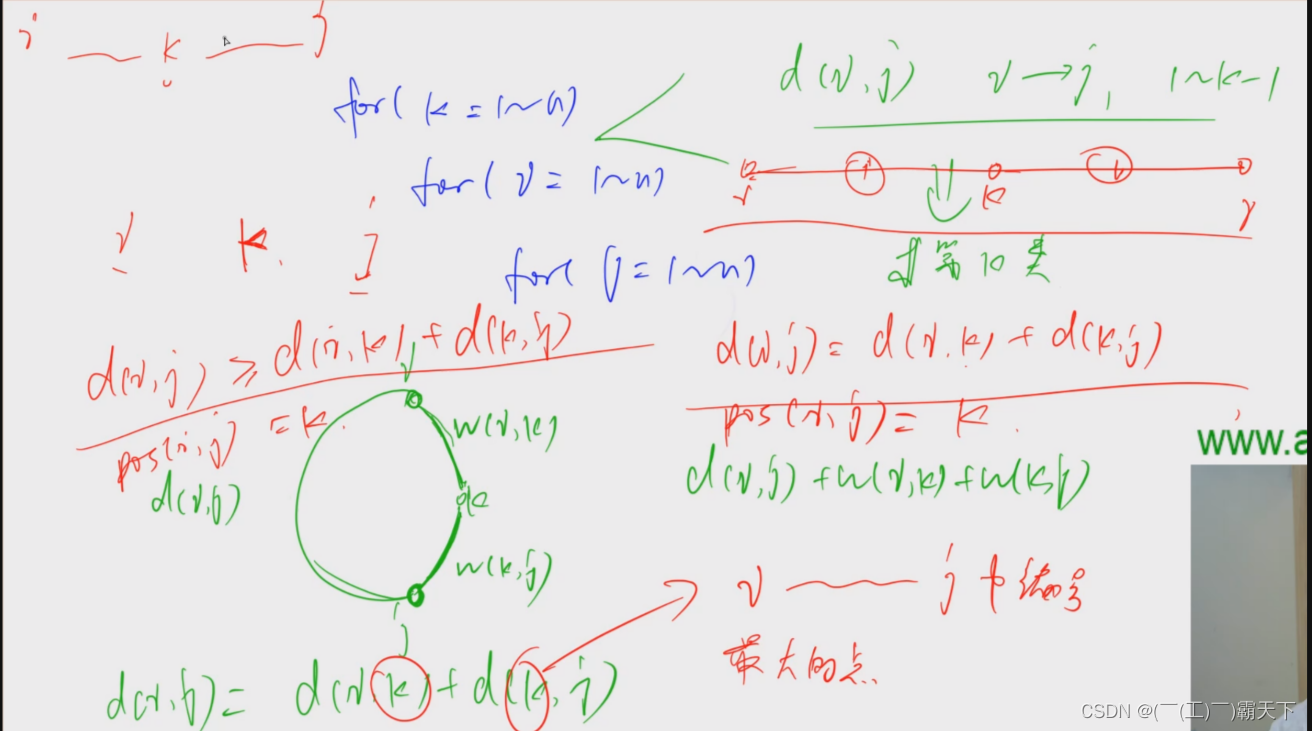 i k j
for( k = 1~n)
for( i = 1~n)
for( j = 1~n)
d(i,j) i→j, 1~k-1
i k j
i k j
求第k类
d(i,j) ≥ d(i,k) + d(k,j)
pos(i,j) = k.
d(i,j) = d(i,k) + d(k,j)
pos(i,j) = k.
d(i,j) + w(i,k) + w(k,j)
i
w(i,k)
k
d(i,j)
w(k,j)
j
i j 中编号
最大的点.
d(i,j) = d(i,k) + d(k,j)
www.a
CSDN @(￣(工)￣)霸天下